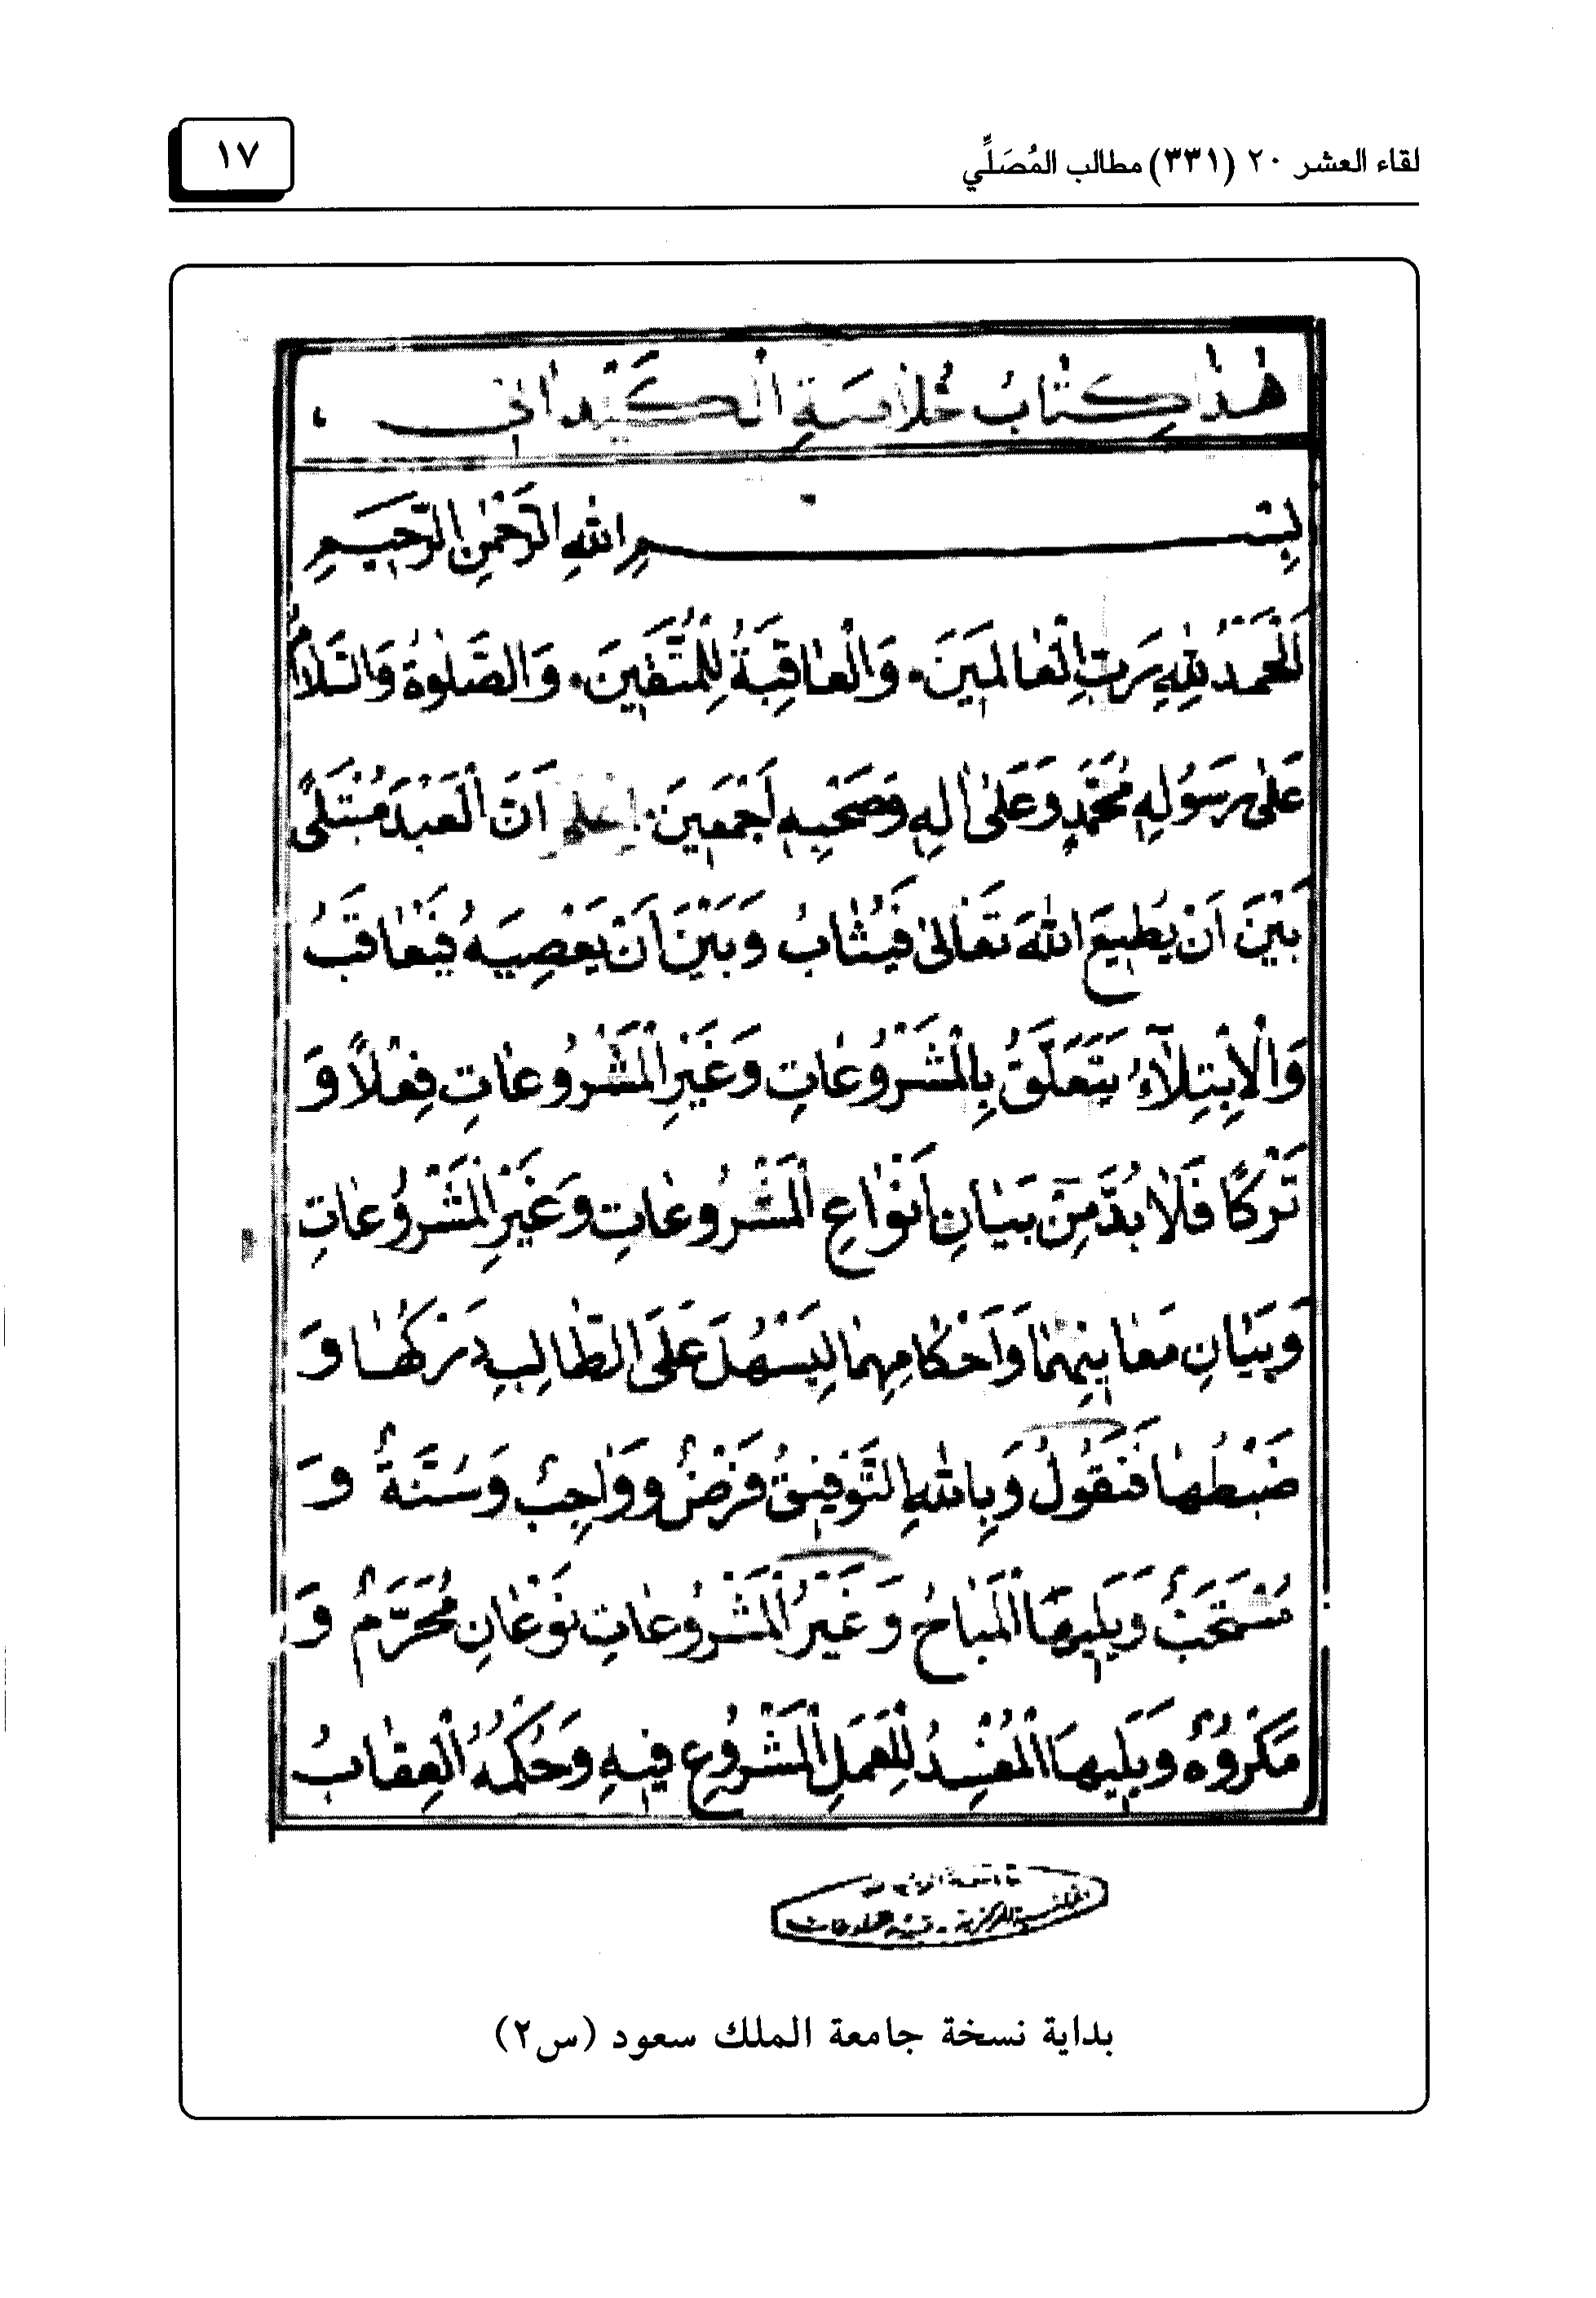 لقاء العشر ٢٠ (٣٣١) مطالب المُصَلِّي
١٧
هٰذا كِتٰابُ خُلاصَةِ الْكَيْدٰانِى
بِسْمِ اللهِ الرَّحْمٰنِ الرَّحِيمِ
اَلْحَمْدُ لِلهِ رَبِّ الْعٰالَمِينَ. وَالْعٰاقِبَةُ لِلْمُتَّقِينَ. وَالصَّلٰوةُ وَالسَّلَامُ
عَلٰى رَسُولِهِ مُحَمَّدٍ وَعَلٰى اٰلِهِ وَصَحْبِهِ اَجْمَعِينَ. اِعْلَمْ اَنَّ الْعَبْدَ مُبْتَلًى
بَيْنَ اَنْ يُطِيعَ اللهَ تَعَالٰى فَيُثٰابُ وَبَيْنَ اَنْ يَعْصِيَهُ فَيُعٰاقَبُ
وَالْاِبْتِلَآءُ يَتَعَلَّقُ بِالْمَشْرُوعٰاتِ وَغَيْرِ الْمَشْرُوعٰاتِ فِعْلًا وَ
تَرْكًا فَلٰا بُدَّ مِنْ بَيٰانِ اَنْوٰاعِ الْمَشْرُوعٰاتِ وَغَيْرِ الْمَشْرُوعٰاتِ
وَبَيٰانِ مَعٰانِيهِمٰا وَاَحْكٰامِهِمٰا لِيَسْهُلَ عَلَى الطّٰالِبِ دَرْكُهٰا وَ
ضَبْطُهٰا فَنَقُولُ وَبِاللهِ التَّوْفِيقُ فَرْضٌ وَوٰاجِبٌ وَسُنَّةٌ وَ
مُسْتَحَبٌّ وَيَلِيهَا الْمُبٰاحُ وَغَيْرُ الْمَشْرُوعٰاتِ نَوْعٰانِ مُحَرَّمٌ وَ
مَكْرُوهٌ وَيَلِيهَا الْمُفْسِدُ لِلْعَمَلِ الْمَشْرُوعِ فِيهِ وَحُكْمُهُ الْعِقٰابُ
بداية نسخة جامعة الملك سعود (س٢)